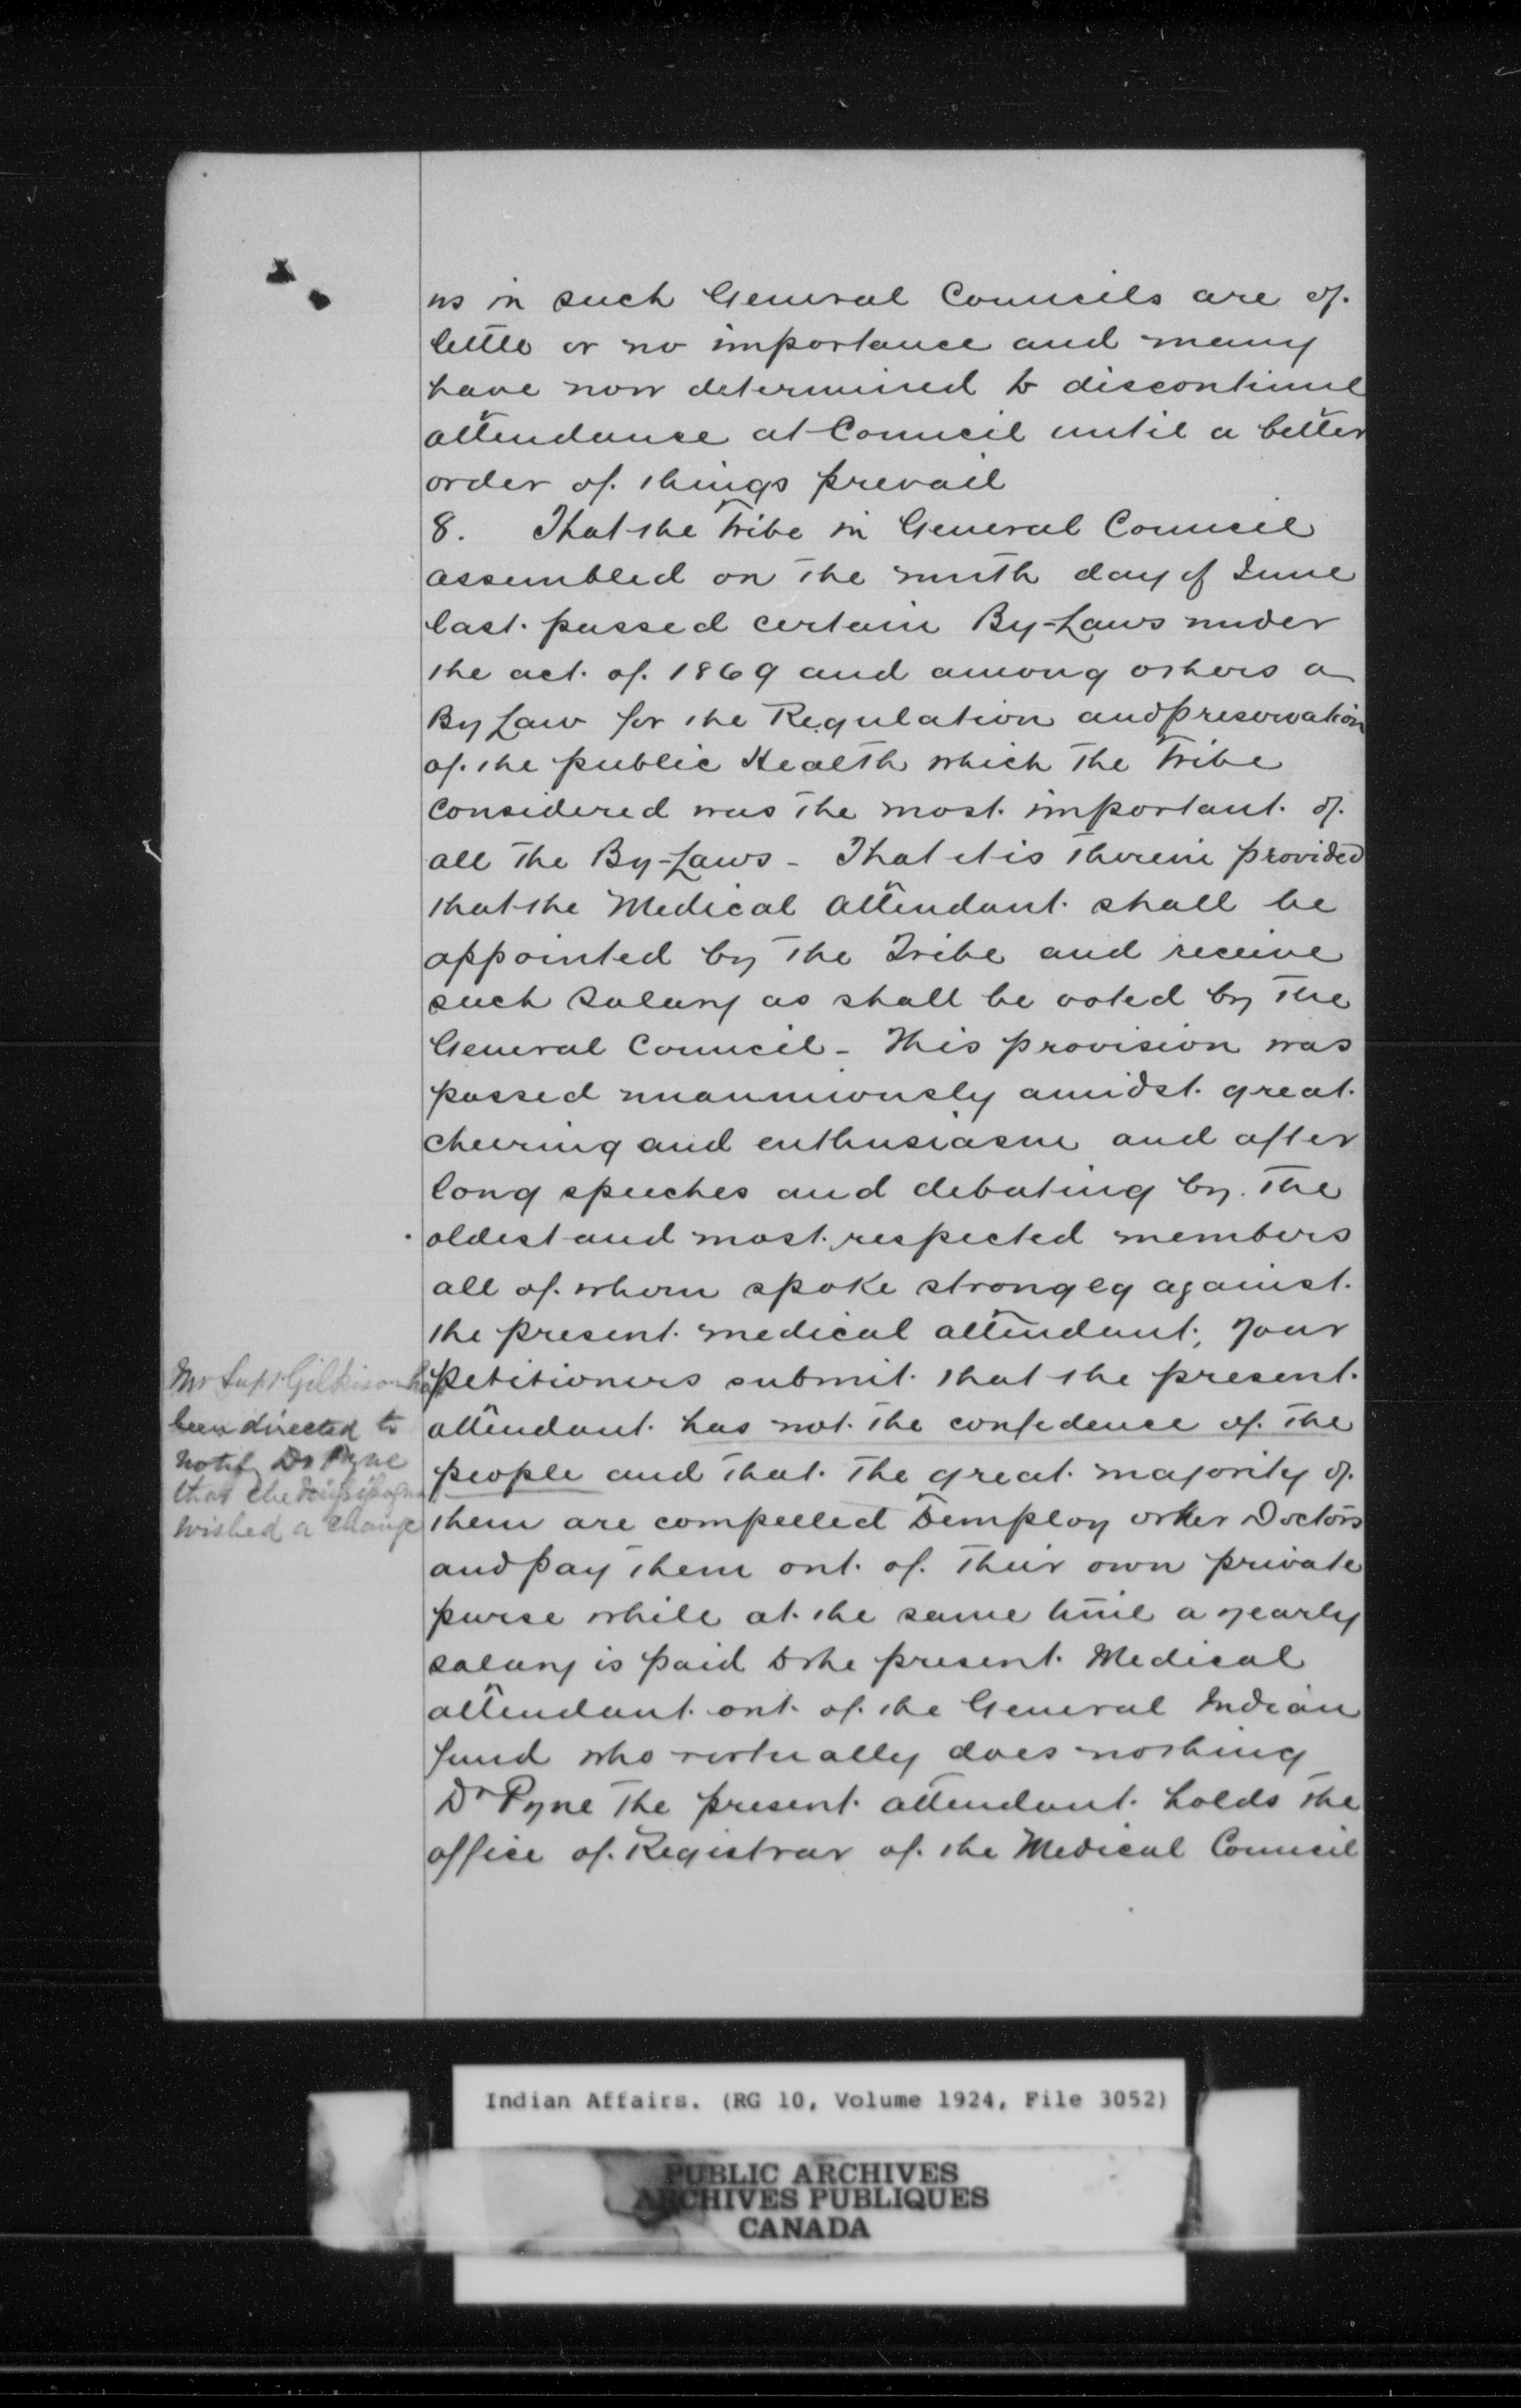 us in such General Councils are of
little or no importance and many
have now determined to discontinue
attendance at Council until a better
order of things prevail
8. That the Tribe in General Council
assembled on the ninth day of June
last passed certain By-Laws under
the act of 1869 and among others a
By Law for the Regulation and preservation
of the public Health which the Tribe
considered was the most important of
all the By-Laws - That it is therein provided
that the Medical Attendant shall be
appointed by the Tribe and receive
such Salary as shall be voted by the
General Council - This provision was
passed unanimously amidst great
cheering and enthusiasm and after
long speeches and debating by the
oldest and most respected members
all of whom spoke strongly against
the present medical attendant, your
petitioners submit that the present
attendant has not the confidence of the
people and that the great majority of
them are compelled to employ other Doctors
and pay them out of their own private
purse while at the same time a yearly
salary is paid to the present Medical
attendant out of the General Indian
fund who virtually does nothing
Dr Pyne the present attendant holds the
office of Registrar of the Medical Council
Mr Supt Gilkison has
been directed to
notify Dr Pyne
that the
wished a change
Indian Affairs. (RG 10, Volume 1924, File 3052)
PUBLIC ARCHIVES
ARCHIVES PUBLIQUES
CANADA